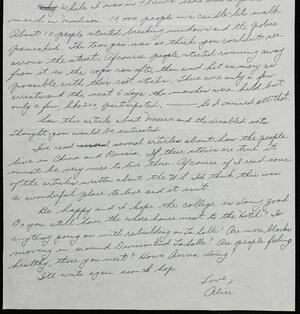 While I was in
march in Madison. 10,000 people in a candle-lite walk.
About 10 people started breaking windows and the police
panicked. The tear gas was so thick you couldn't see
across the street. Of course people started running away
from it so the cops ran after them and hit as many as
possible with their riot sticks. There were only a few
arrests and the next 6 days the marches were held but
only a few, like 200 participated. So I missed all that.
Saw this article about Mexico and the disabled
thought you would be interested.
I've read several articles about how the people
live in China and Russia. If these stories are true it
must be very nice to live there. Of course if I read some
of the articles written about the U.S. I'd think this was
a wonderful place to live and it isn't.
Be happy and I hope the college is doing good.
Do you still have the whorehouse next to the hotel? Is
anything going on with rebuilding on LaSalle? Are more blacks
moving in around Division and LaSalle? Are people feeling
healthy, those you meet? How's Anna doing?
I'll write again soon I hope.
Love,
Alice